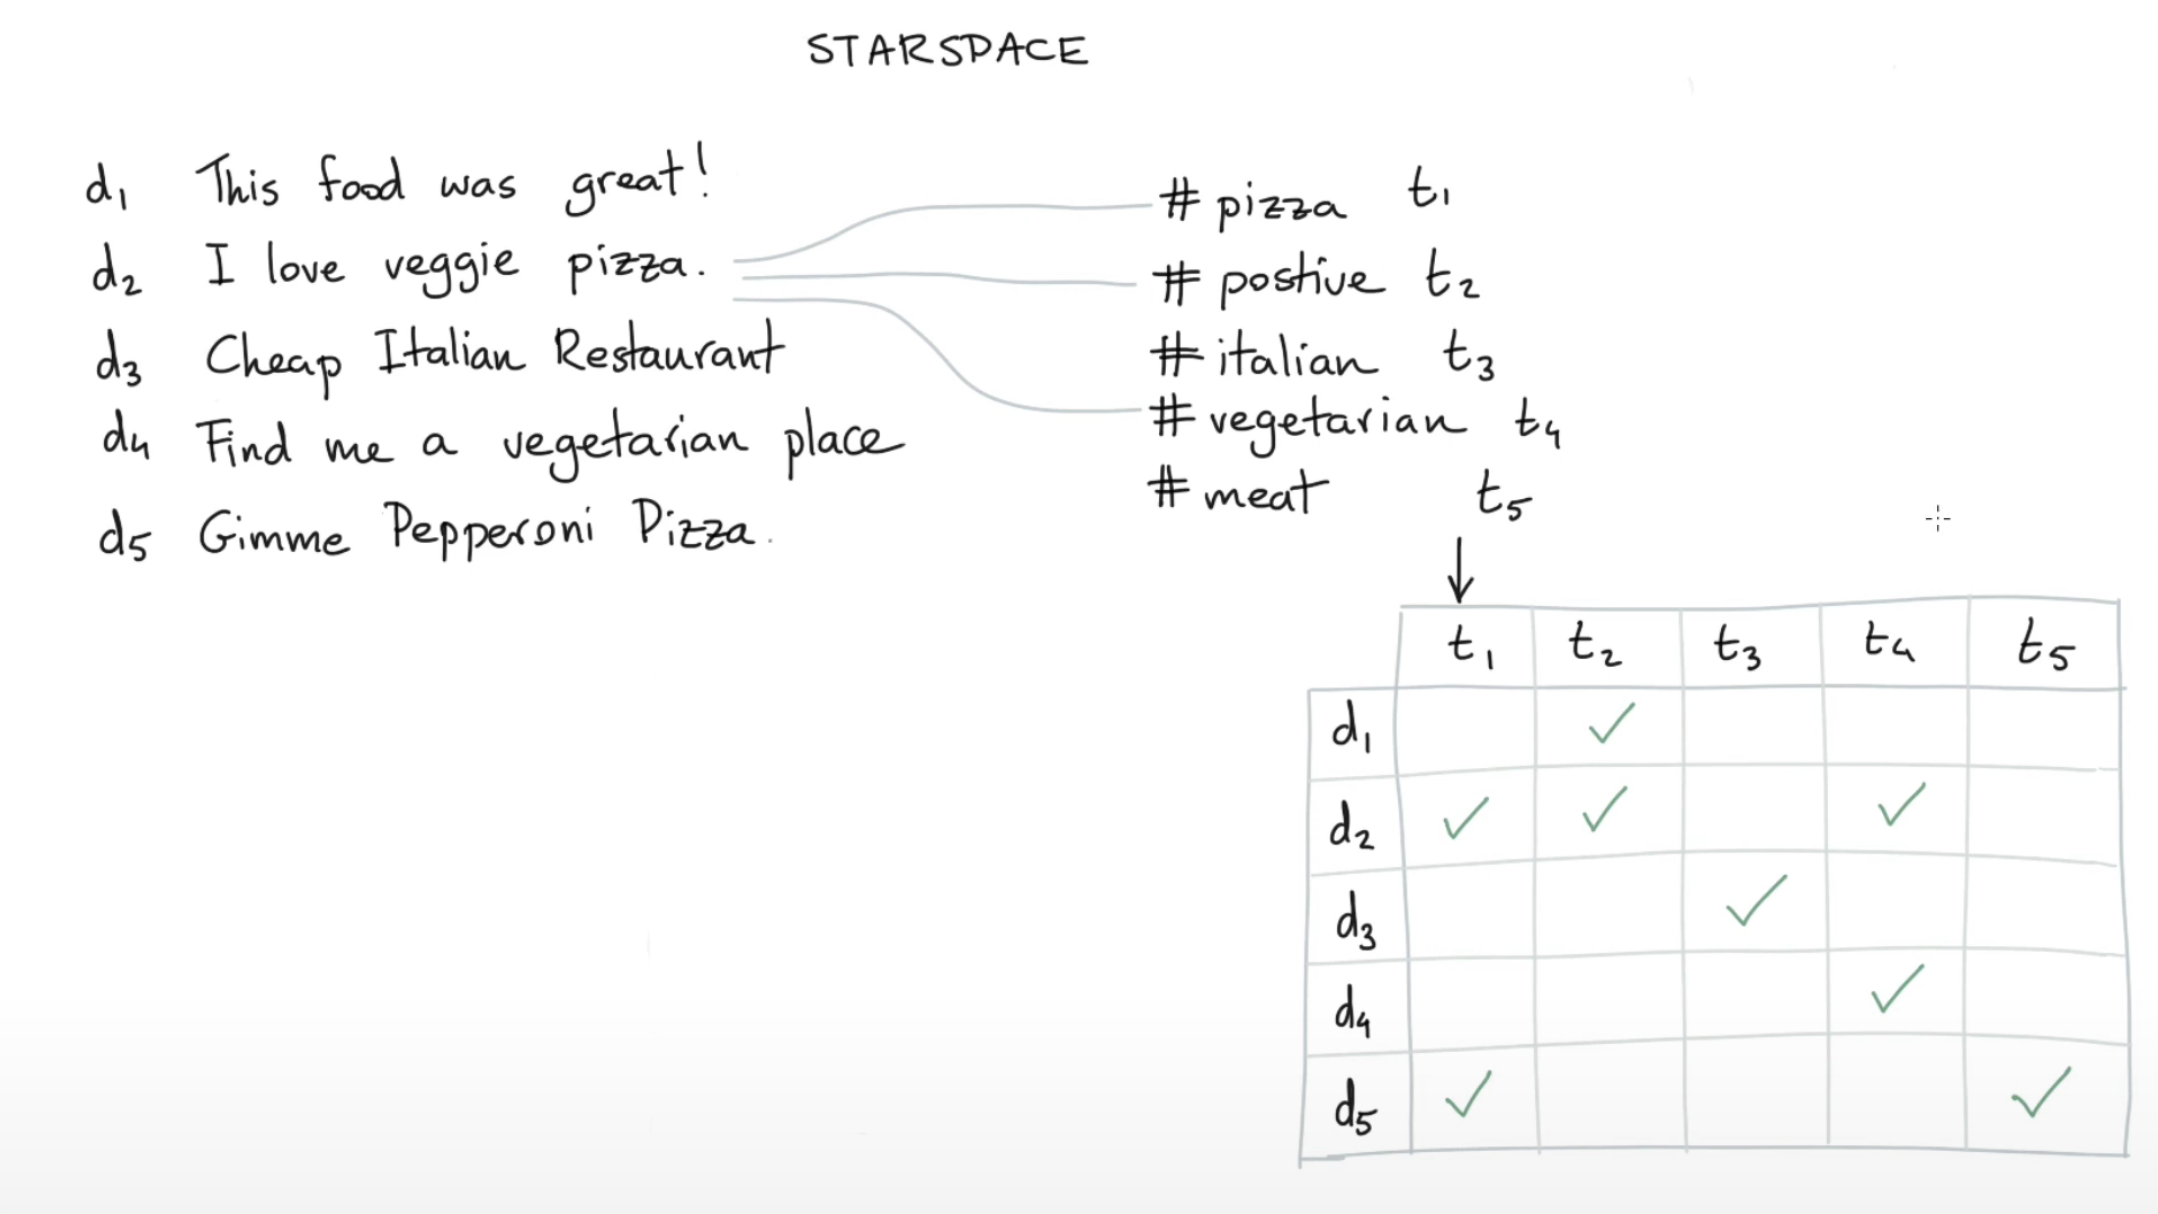 STARSPACE
d1 This food was great!
d2 I love veggie pizza.
d3 Cheap Italian Restaurant
d4 Find me a vegetarian place
d5 Gimme Pepperoni Pizza.
# pizza t1
# postive t2
# italian t3
# vegetarian t4
# meat t5
t1 t2 t3 t4 t5
d1 ✓
d2 ✓ ✓ ✓
d3 ✓
d4 ✓
d5 ✓ ✓